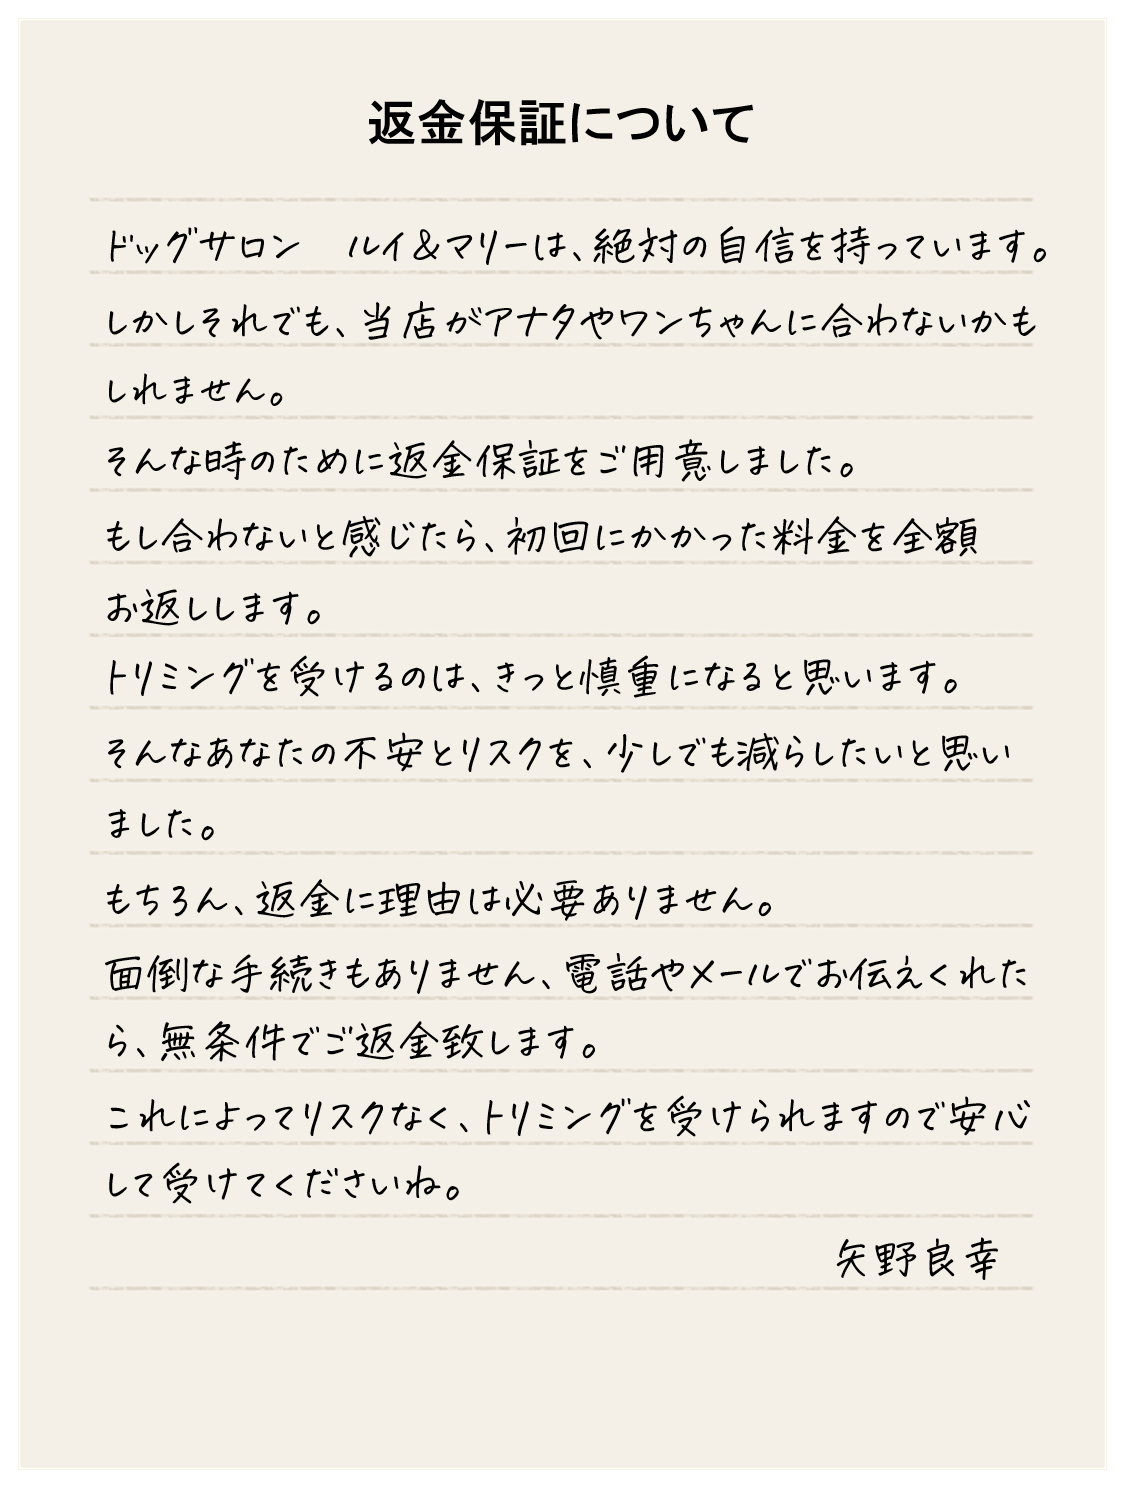 返金保証について
ドッグサロン　ルイ&マリーは、絶対の自信を持っています。
しかしそれでも、当店がアナタやワンちゃんに合わないかも
しれません。
そんな時のために返金保証をご用意しました。
もし合わないと感じたら、初回にかかった料金を全額
お返しします。
トリミングを受けるのは、きっと慎重になると思います。
そんなあなたの不安とリスクを、少しでも減らしたいと思い
ました。
もちろん、返金に理由は必要ありません。
面倒な手続きもありません、電話やメールでお伝えくれた
ら、無条件でご返金致します。
これによってリスクなく、トリミングを受けられますので安心
して受けてくださいね。
矢野良幸